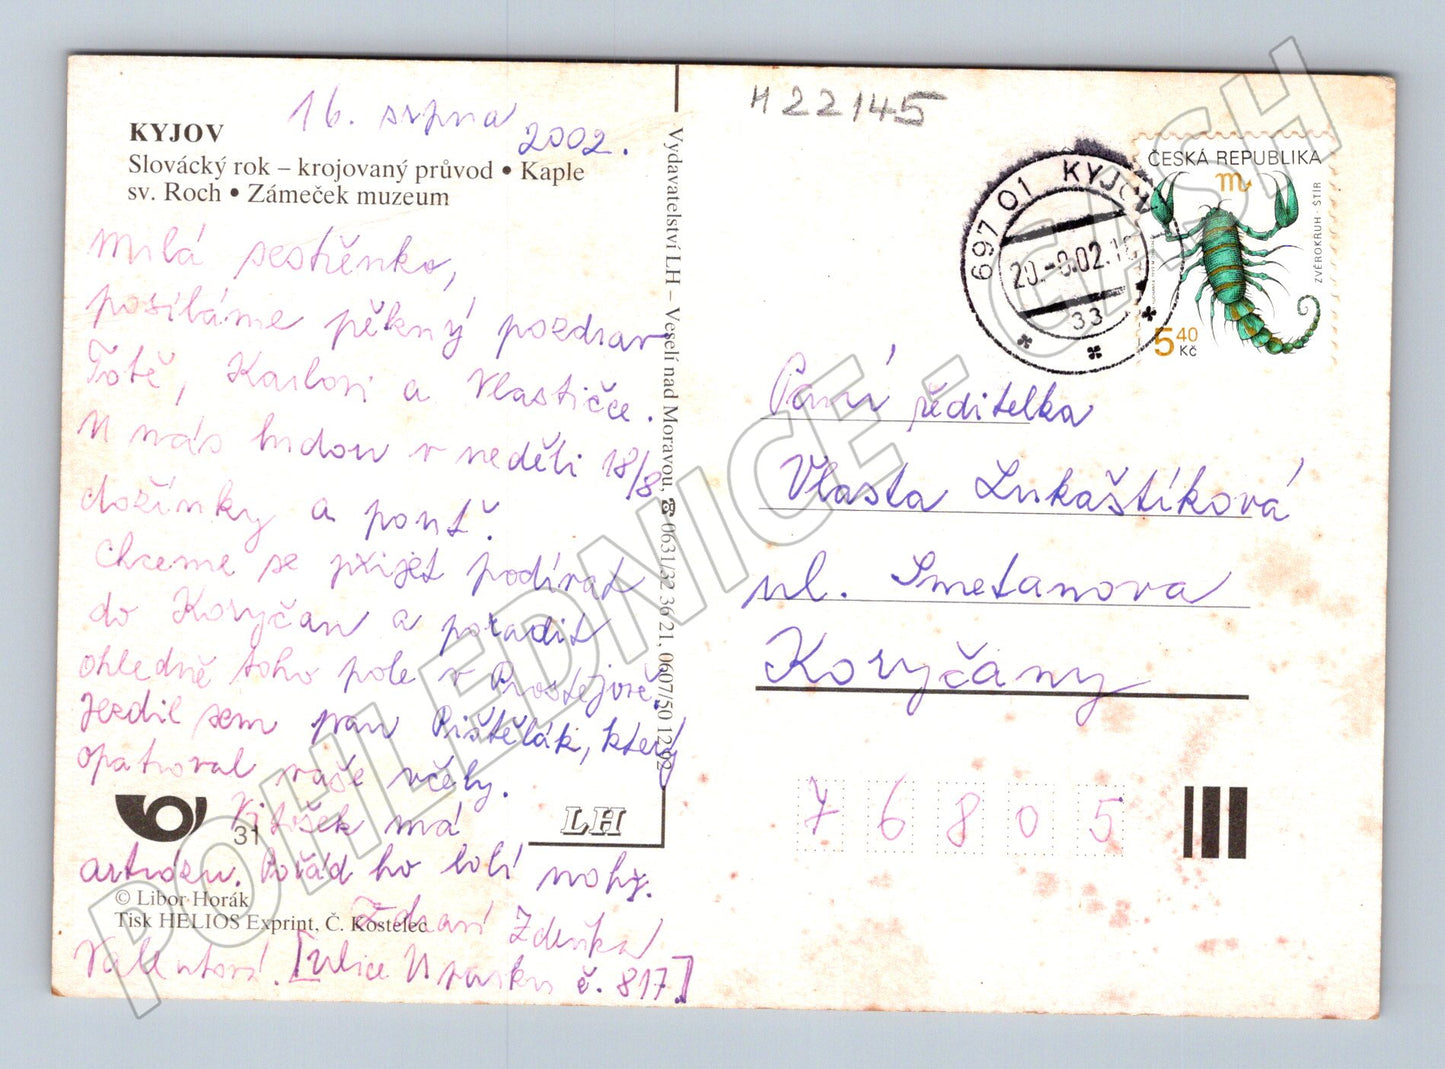 16. srpna 2002.
KYJOV
Slovácký rok – krojovaný průvod • Kaple
sv. Roch • Zámeček muzeum
Milá sestřenko,
posíláme pěkný pozdrav
Totě, Karlovi a Vlastičce.
U nás budou v neděli 18/8
dožínky a pouť.
Chceme se přijet podívat
do Koryčan a poradit
ohledně toho pole v Prostějově.
Jezdil sem pan Pištělák, který
opatroval vaše včely.
Vítíšek má
artrózu. Pořád ho bolí nohy.
Zdraví Zdenka
Valentová. [ulice U parku č. 817.]
31
LH
© Libor Horák
Tisk HELIOS Exprint, Č. Kostelec
Vydavatelství LH – Veselí nad Moravou, ☎ 0631/32 36 21, 0607/50 12 92
H22145
697 01 KYJOV
20.-8.02.
33
ČESKÁ REPUBLIKA
ZVĚROKRUH - ŠTÍR
5 40 Kč
Paní ředitelka
Vlasta Lukaštíková
ul. Smetanova
Koryčany
76805
POHLEDNICE - CASH